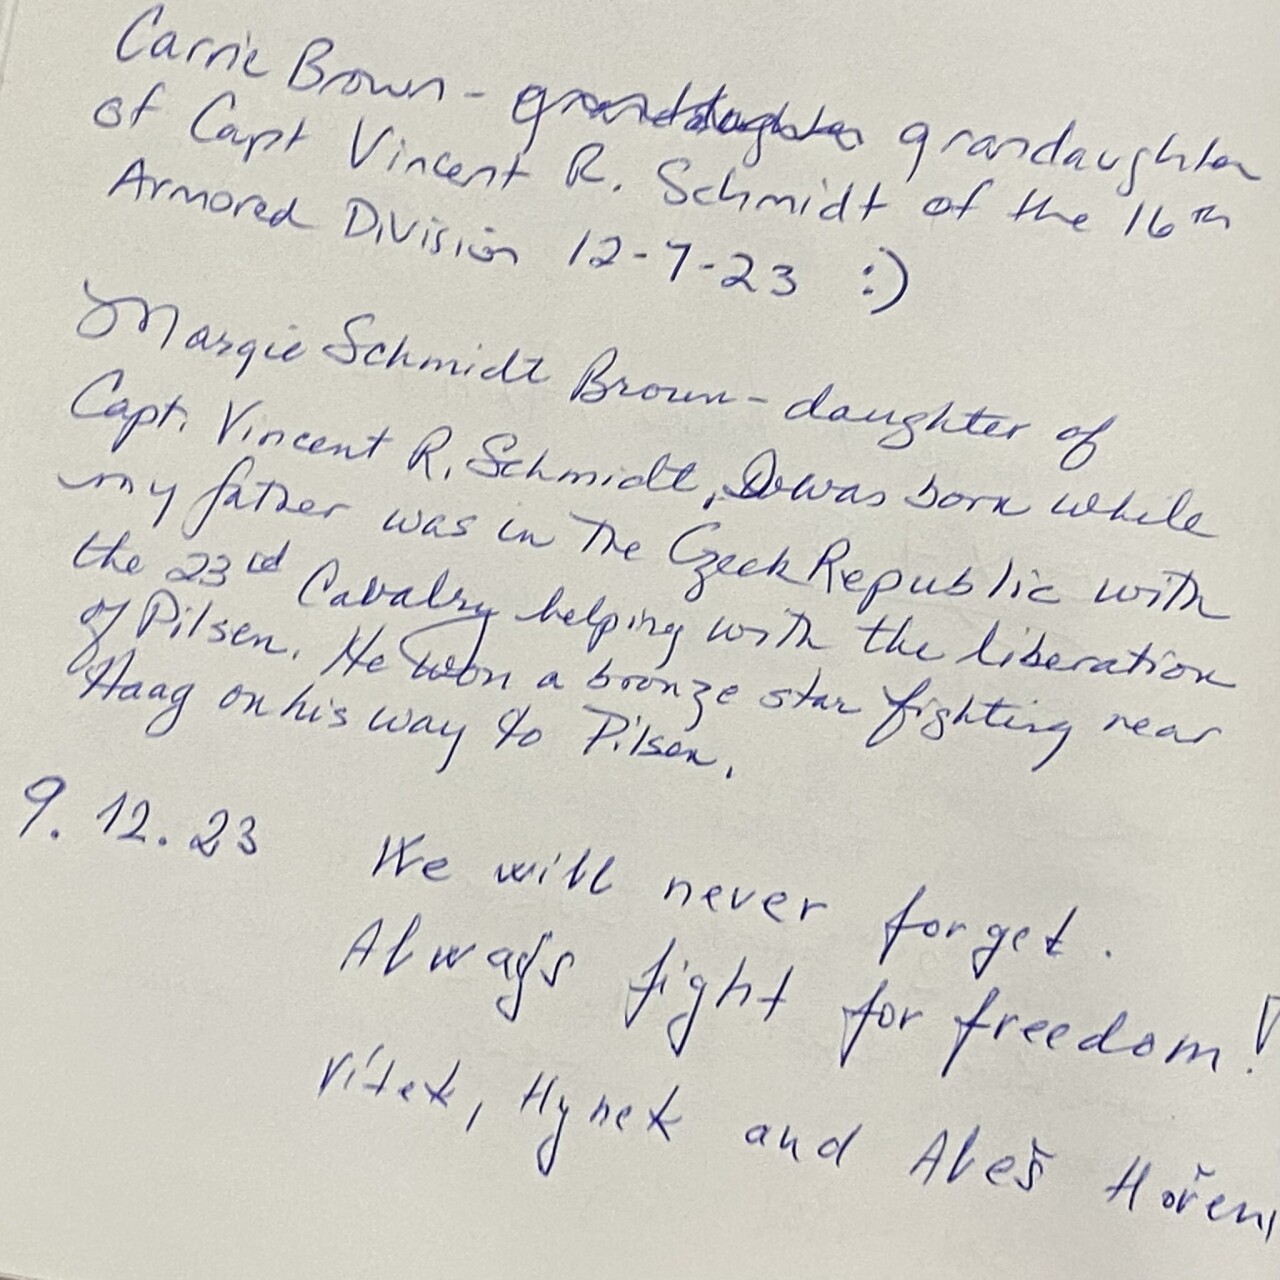 Carrie Brown - granddaughter grandaughter
of Capt Vincent R. Schmidt of the 16th
Armored Division 12-7-23 :)
Margie Schmidt Brown - daughter of
Capt. Vincent R. Schmidt, I was born while
my father was in the Czech Republic with
the 23rd Cavalry helping with the liberation
of Pilsen. He won a bronze star fighting near
Haag on his way to Pilsen.
9. 12. 23 We will never forget.
Always fight for freedom!
Vítek, Hynek and Aleš